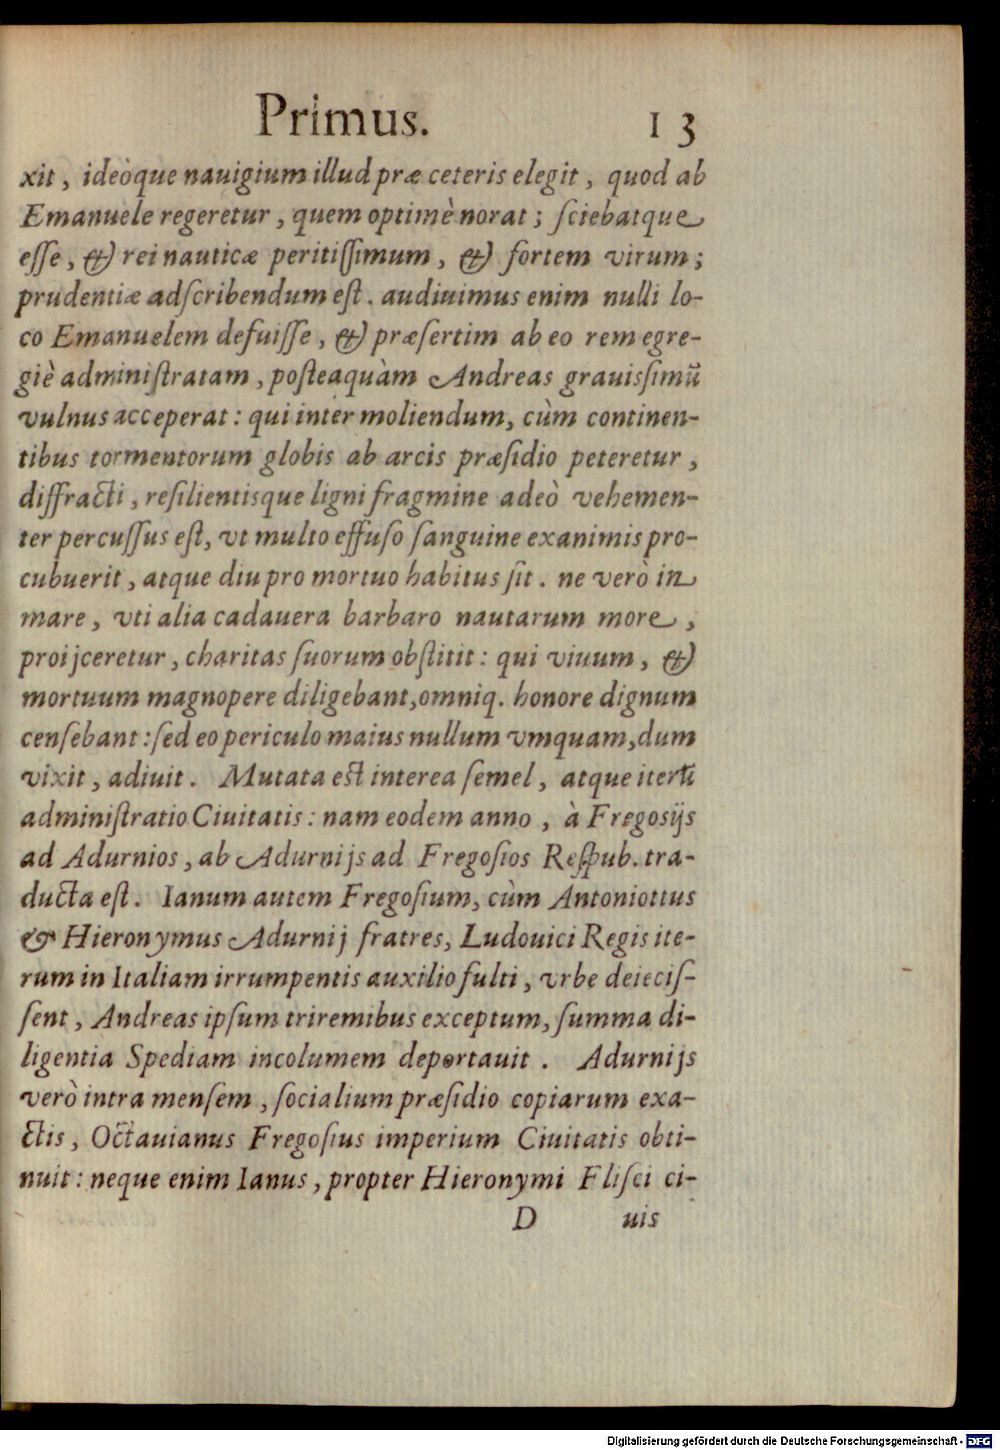 Primus. 13
xit, ideòque nauigium illud præ ceteris elegit, quod ab
Emanuele regeretur, quem optimè norat; ſciebatque
eſſe, & rei nauticæ peritiſſimum, & fortem virum;
prudentiæ adſcribendum eſt. audiuimus enim nulli lo-
co Emanuelem defuiſſe, & præſertim ab eo rem egre-
giè adminiſtratam, poſteaquàm Andreas grauiſſimũ
vulnus acceperat: qui inter moliendum, cùm continen-
tibus tormentorum globis ab arcis præſidio peteretur,
diffracti, reſilientisque ligni fragmine adeò vehemen-
ter percuſſus eſt, vt multo effuſo ſanguine exanimis pro-
cubuerit, atque diu pro mortuo habitus ſit. ne verò in
mare, vti alia cadauera barbaro nautarum more,
proijceretur, charitas ſuorum obſtitit: qui viuum, &
mortuum magnopere diligebant, omniq. honore dignum
cenſebant: ſed eo periculo maius nullum vmquam, dum
vixit, adiuit. Mutata est interea ſemel, atque iterũ
adminiſtratio Ciuitatis: nam eodem anno, à Fregosijs
ad Adurnios, ab Adurnijs ad Fregoſios Reſpub. tra-
ducta eſt. Ianum autem Fregoſium, cùm Antoniottus
& Hieronymus Adurnij fratres, Ludouici Regis ite-
rum in Italiam irrumpentis auxilio fulti, vrbe deieciſ-
ſent, Andreas ipſum triremibus exceptum, ſumma di-
ligentia Spediam incolumem deportauit. Adurnijs
verò intra menſem, ſocialium præſidio copiarum exa-
ctis, Octauianus Fregoſius imperium Ciuitatis obti-
nuit: neque enim Ianus, propter Hieronymi Fliſci ci-
D uis
Digitalisierung gefördert durch die Deutsche Forschungsgemeinschaft - DFG